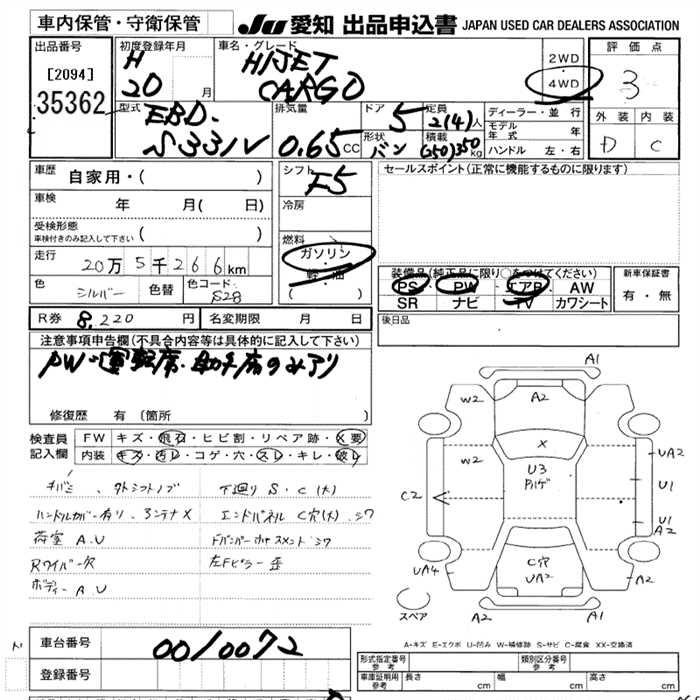 車内保管・守衛保管
JU 愛知 出品申込書 JAPAN USED CAR DEALERS ASSOCIATION
出品番号
[2094]
35362
初度登録年月
H
20 月
車名・グレード
HIJET
CARGO
2WD
・
4WD
評価点
3
外装 内装
D C
型式
EBD-
S331V
排気量
0.65 CC
ドア
5
定員
2(4)人
形状
バン
積載
(250)350 kg
ディーラー・並行
モデル年式 年
ハンドル 左・右
車歴
自家用・( )
車検
年 月( 日)
受検形態
車検付きのみ記入して下さい ( )
走行
20万5千266km
色
シルバー
色替
色コード
S28
シフト
F5
冷房
燃料
ガソリン
・
軽油
( )
セールスポイント(正常に機能するものに限ります)
装備品(純正品に限り○をつけてください)
PS PW エアB AW
SR ナビ TV カワシート
新車保証書
有・無
R券 8,220 円
名変期限 月 日
後日品
注意事項申告欄(不具合内容等は具体的に記入して下さい)
PW・運転席・助手席のみアリ
修復歴 有 (箇所 )
検査員
記入欄
FW キズ・飛石・ヒビ割・リペア跡・X要
内装 キズ・汚レ・コゲ・穴・スレ・キレ・破レ
外シフトノブ
ハンドルカバー有り、アンテナX
荷室 A.U
Rワイパー欠
ボディー A.U
下廻り S・C(大)
エンドパネル C穴(大)、シワ
左Fピラー 歪
A1
W2
A2
X
W2
U3
UA2
U1
C2
U1
A2
C穴
UA2
UA4
A2
A2
A1
スペア
A-キズ E-エクボ U-凹み W-補修跡 S-サビ C-腐食 XX-交換済
車台番号
0010072
登録番号
形式指定番号
参考
類別区分番号
参考
車庫証明用
参考
長さ cm 幅 cm 高さ cm